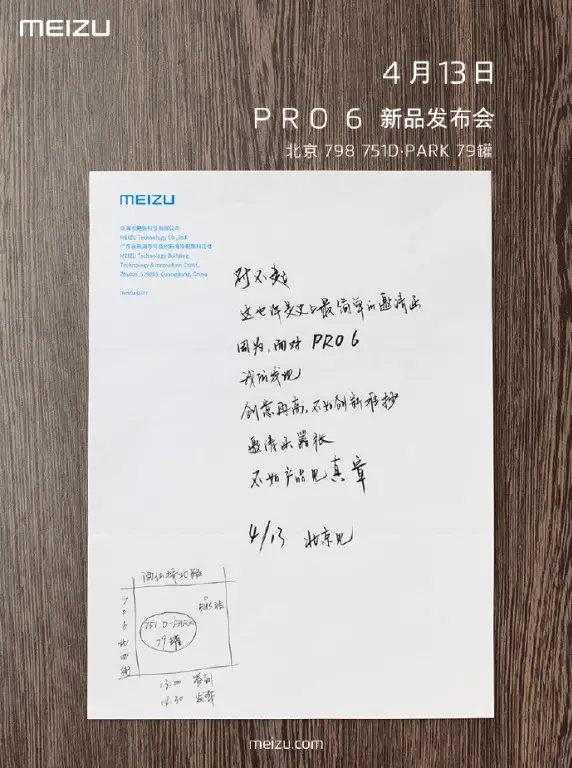 MEIZU
4月13日
PRO 6 新品发布会
北京 798 751D·PARK 79罐
MEIZU
珠海市魅族科技有限公司
MEIZU Technology Co.,Ltd.
MEIZU Technology Building,
Technology & Innovation Coast,
Zhuhai, 519085, Guangdong, China
meizu.com
对不起
这也许是史上最简单的邀请函
因为,面对 PRO 6
我们发现
创意再高,不如创新难抄
邀请函嚣张
不如产品见真章
4/13 北京见
酒仙桥北路
751 D-PARK
79罐
13:00 签到
14:30 发布
meizu.com